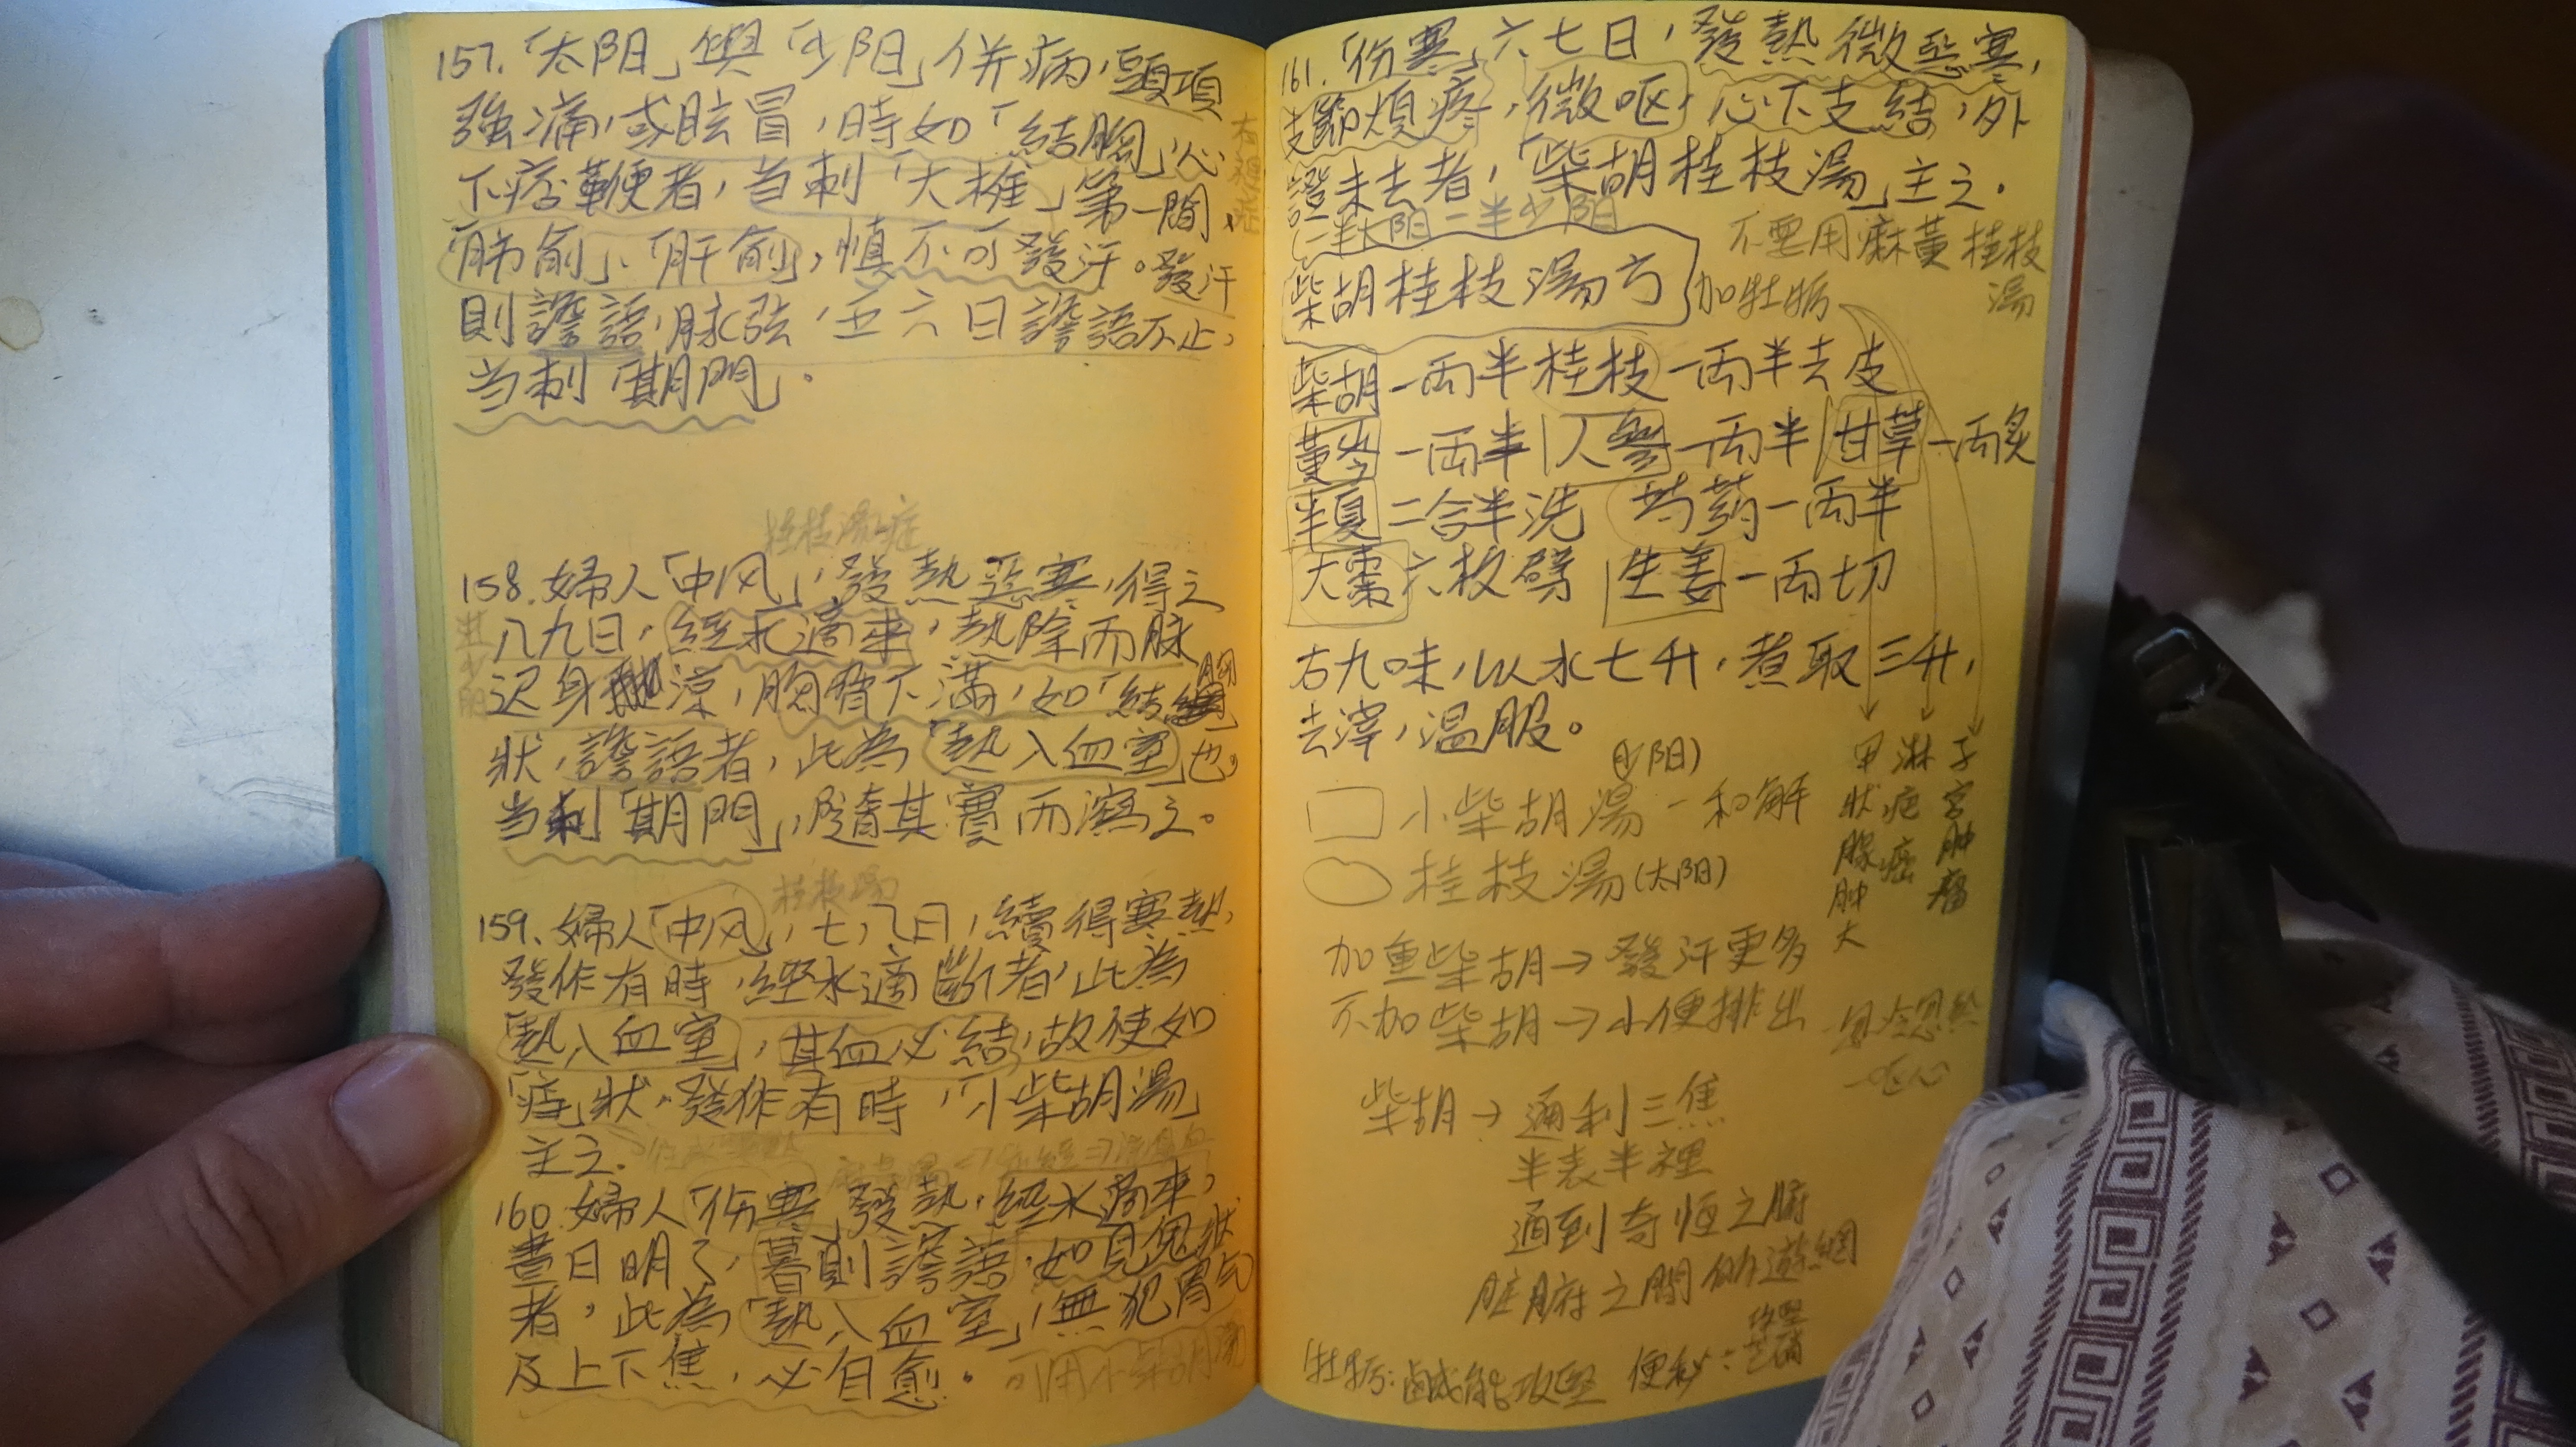 157.「太阳」與「少阳」併病,頭項
強痛,或眩冒,時如「結胸」,心
下痞鞕者,当刺「大椎」第一間、
「肺俞」、「肝俞」,慎不可發汗。發汗
則譫語,脉弦,五六日譫語不止,
当刺「期門」。
桂枝湯症
158.婦人「中风」,發熱惡寒,得之
八九日,經水適來,熱除而脉
迟身涼,胸脅下滿,如「結胸」
狀,譫語者,此為「熱入血室」也。
当刺「期門」,隨其實而瀉之。
桂枝湯
159.婦人「中风」,七八日,續得寒熱,
發作有時,經水適斷者,此為
「熱入血室」,其血必結,故使如
「瘧」狀,發作有時,「小柴胡湯」
主之.
160.婦人「伤寒」發熱,經水適來,
晝日明了,暮則譫語,如見鬼狀
者,此為「熱入血室」,無犯胃气
及上下焦,必自愈。
可用小柴胡湯
161.「伤寒」六七日,發熱微惡寒,
支節煩疼,微呕,心下支結,外
證未去者,「柴胡桂枝湯」主之.
一半太阳一半少阳
不要用麻黃桂枝
湯
柴胡桂枝湯方
加牡蛎
柴胡一两半桂枝一两半去皮
黃芩一两半人參一两半甘草一两炙
半夏二合半洗 芍葯一两半
大棗六枚劈 生姜一两切
右九味,以水七升,煮取三升,
去滓,温服。
甲狀腺肿大
淋疤癌
子宮肿瘤
(少阳)
小柴胡湯-和解
桂枝湯(太阳)
加重柴胡→發汗更多
不加柴胡→小便排出
柴胡→通利三焦
半表半裡
通到奇恒之腑
脏腑之間的遊網
牡蛎:鹹能攻堅 便秘:
芒硝